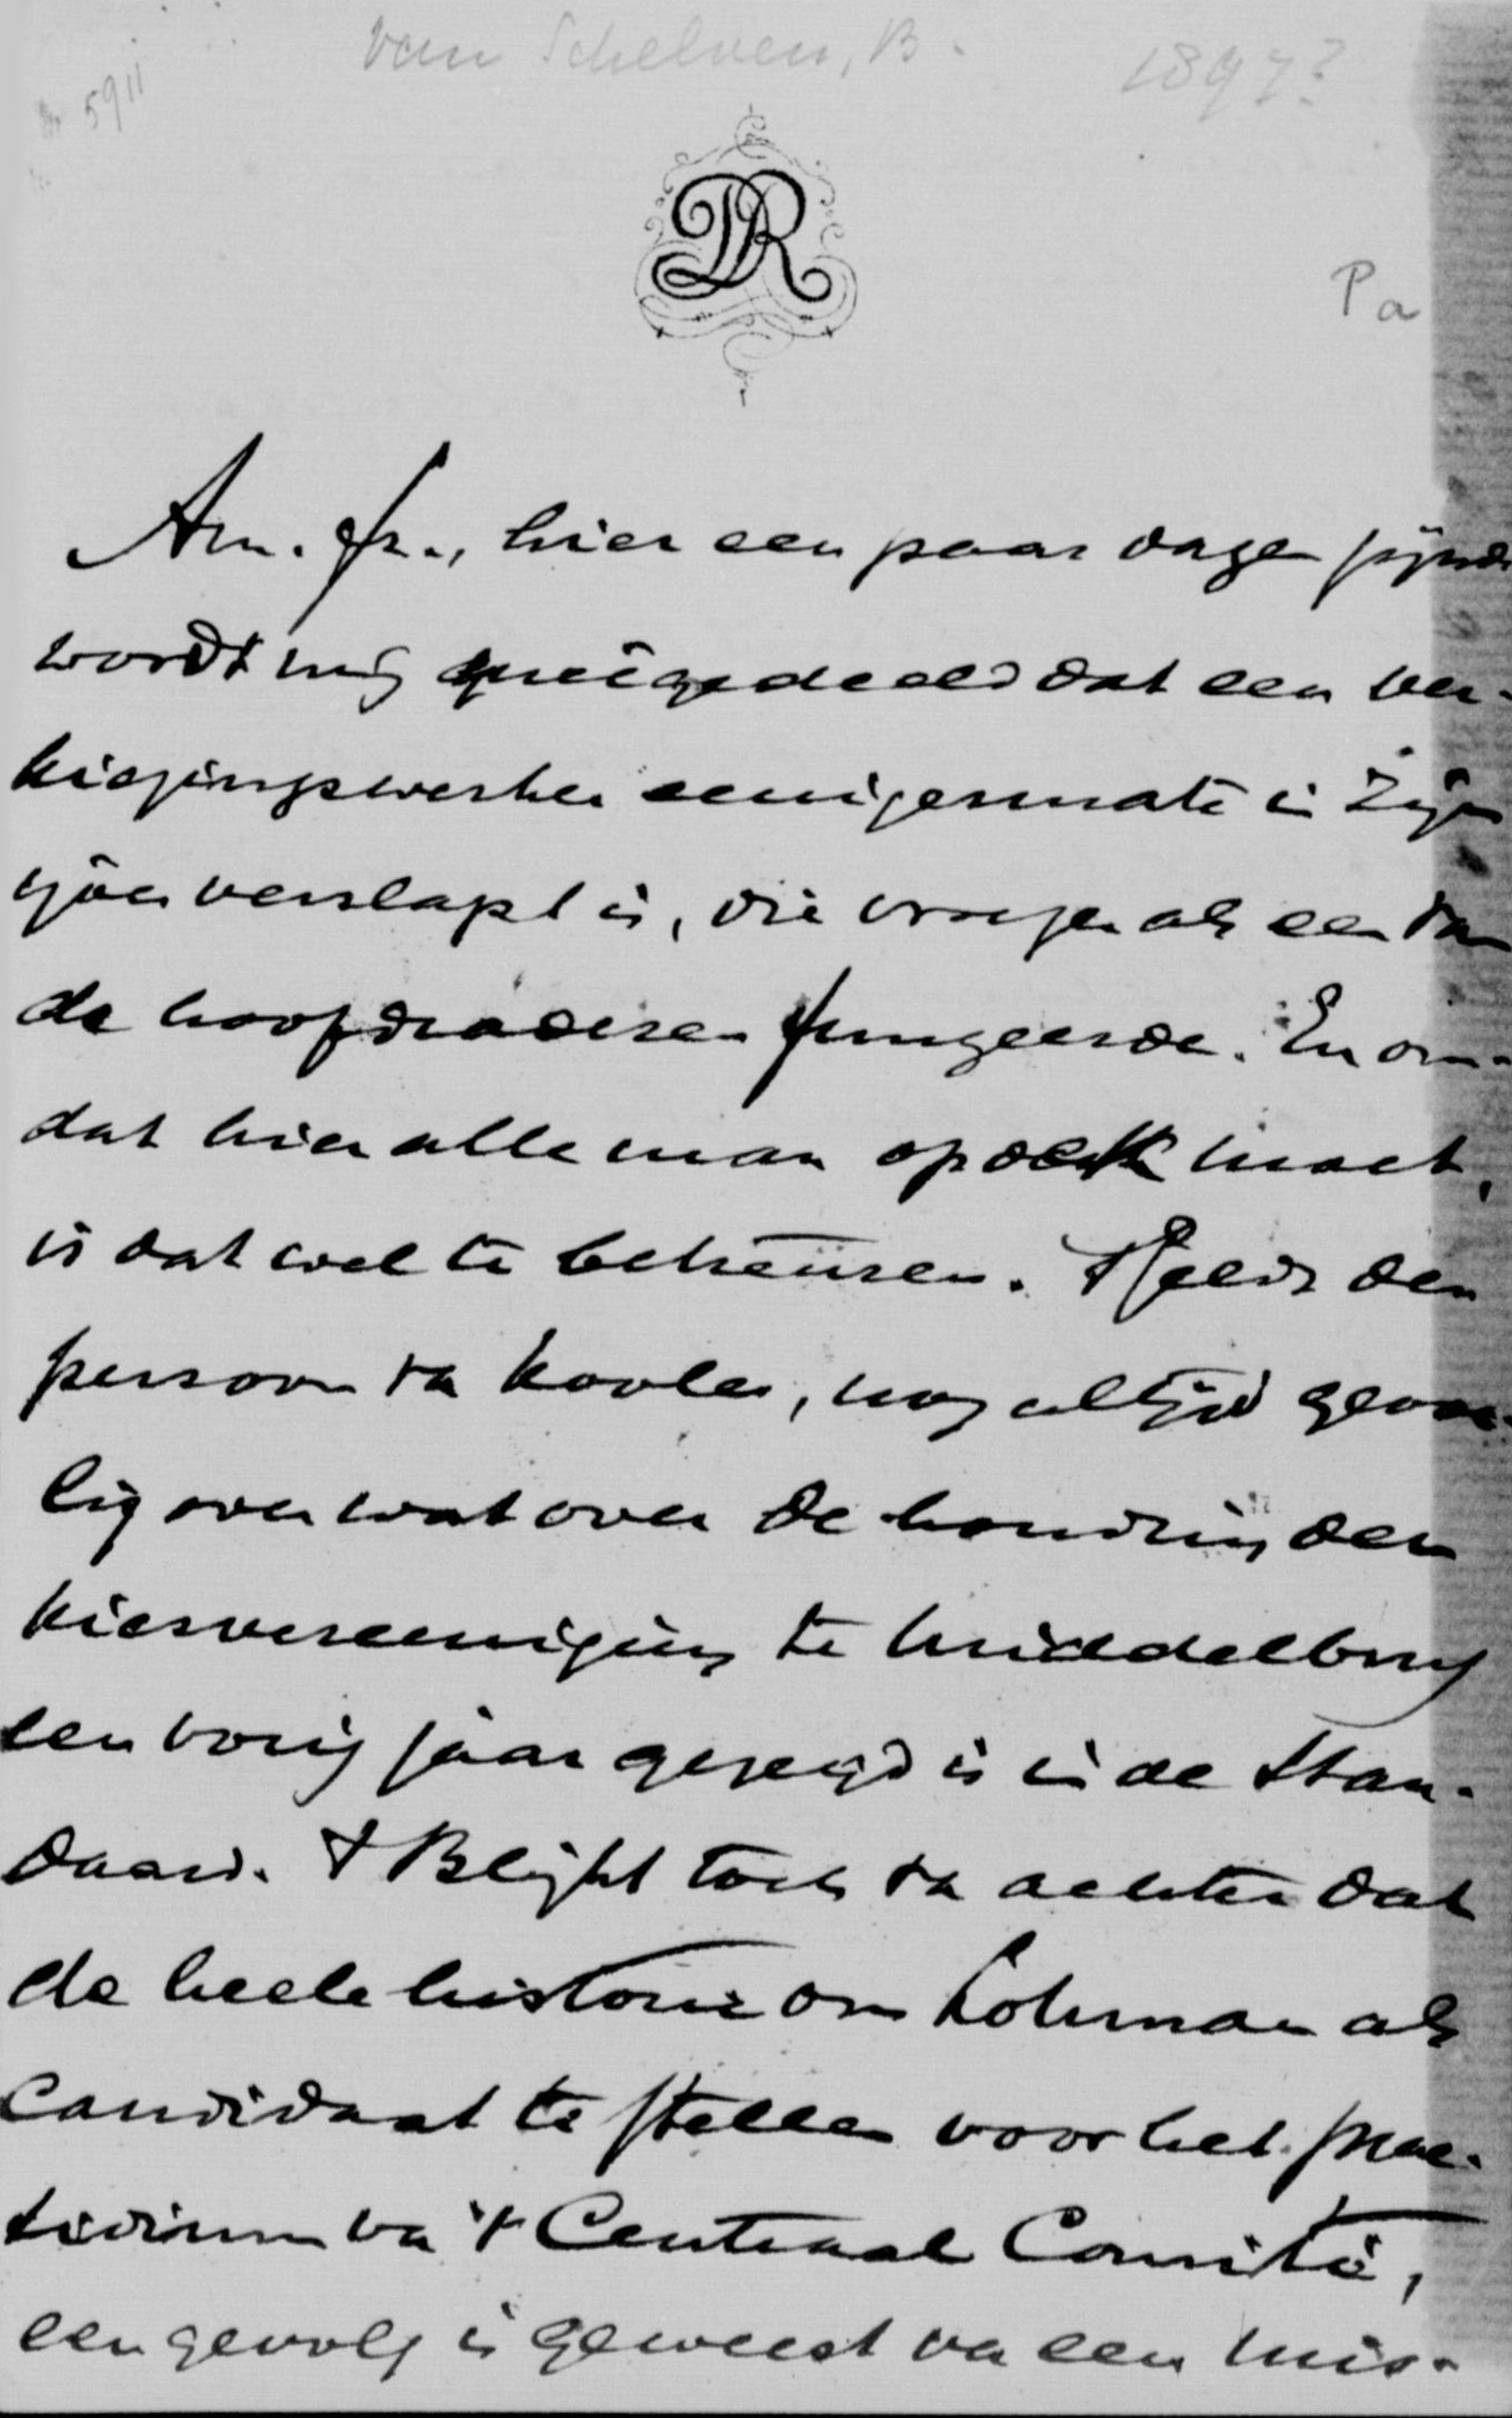 van Schelven, B.
1897?
5911
DR
Pa
Am. fr., hier een paar dagen zijnde
wordt mij meêgedeeld dat een ver-
kiezingswerker eenigermate in zijn
ijver verslapt is, die vroeger als een van
de hoofdraderen fungeerde. En om-
dat hier alle man op dek moet,
is dat wel te betreuren. Het geldt den
persoon van Koole, nog altijd gevoe-
lig over wat over de houding der
kiesvereeniging te Middelburg
een vorig jaar gezegd is in de Stan-
daard. 't Blijkt toch van achter dat
de heele historie om Lohman als
Candidaat te stellen voor het prae-
sidium van 't Centraal Comité,
een gevolg is geweest van een mis-